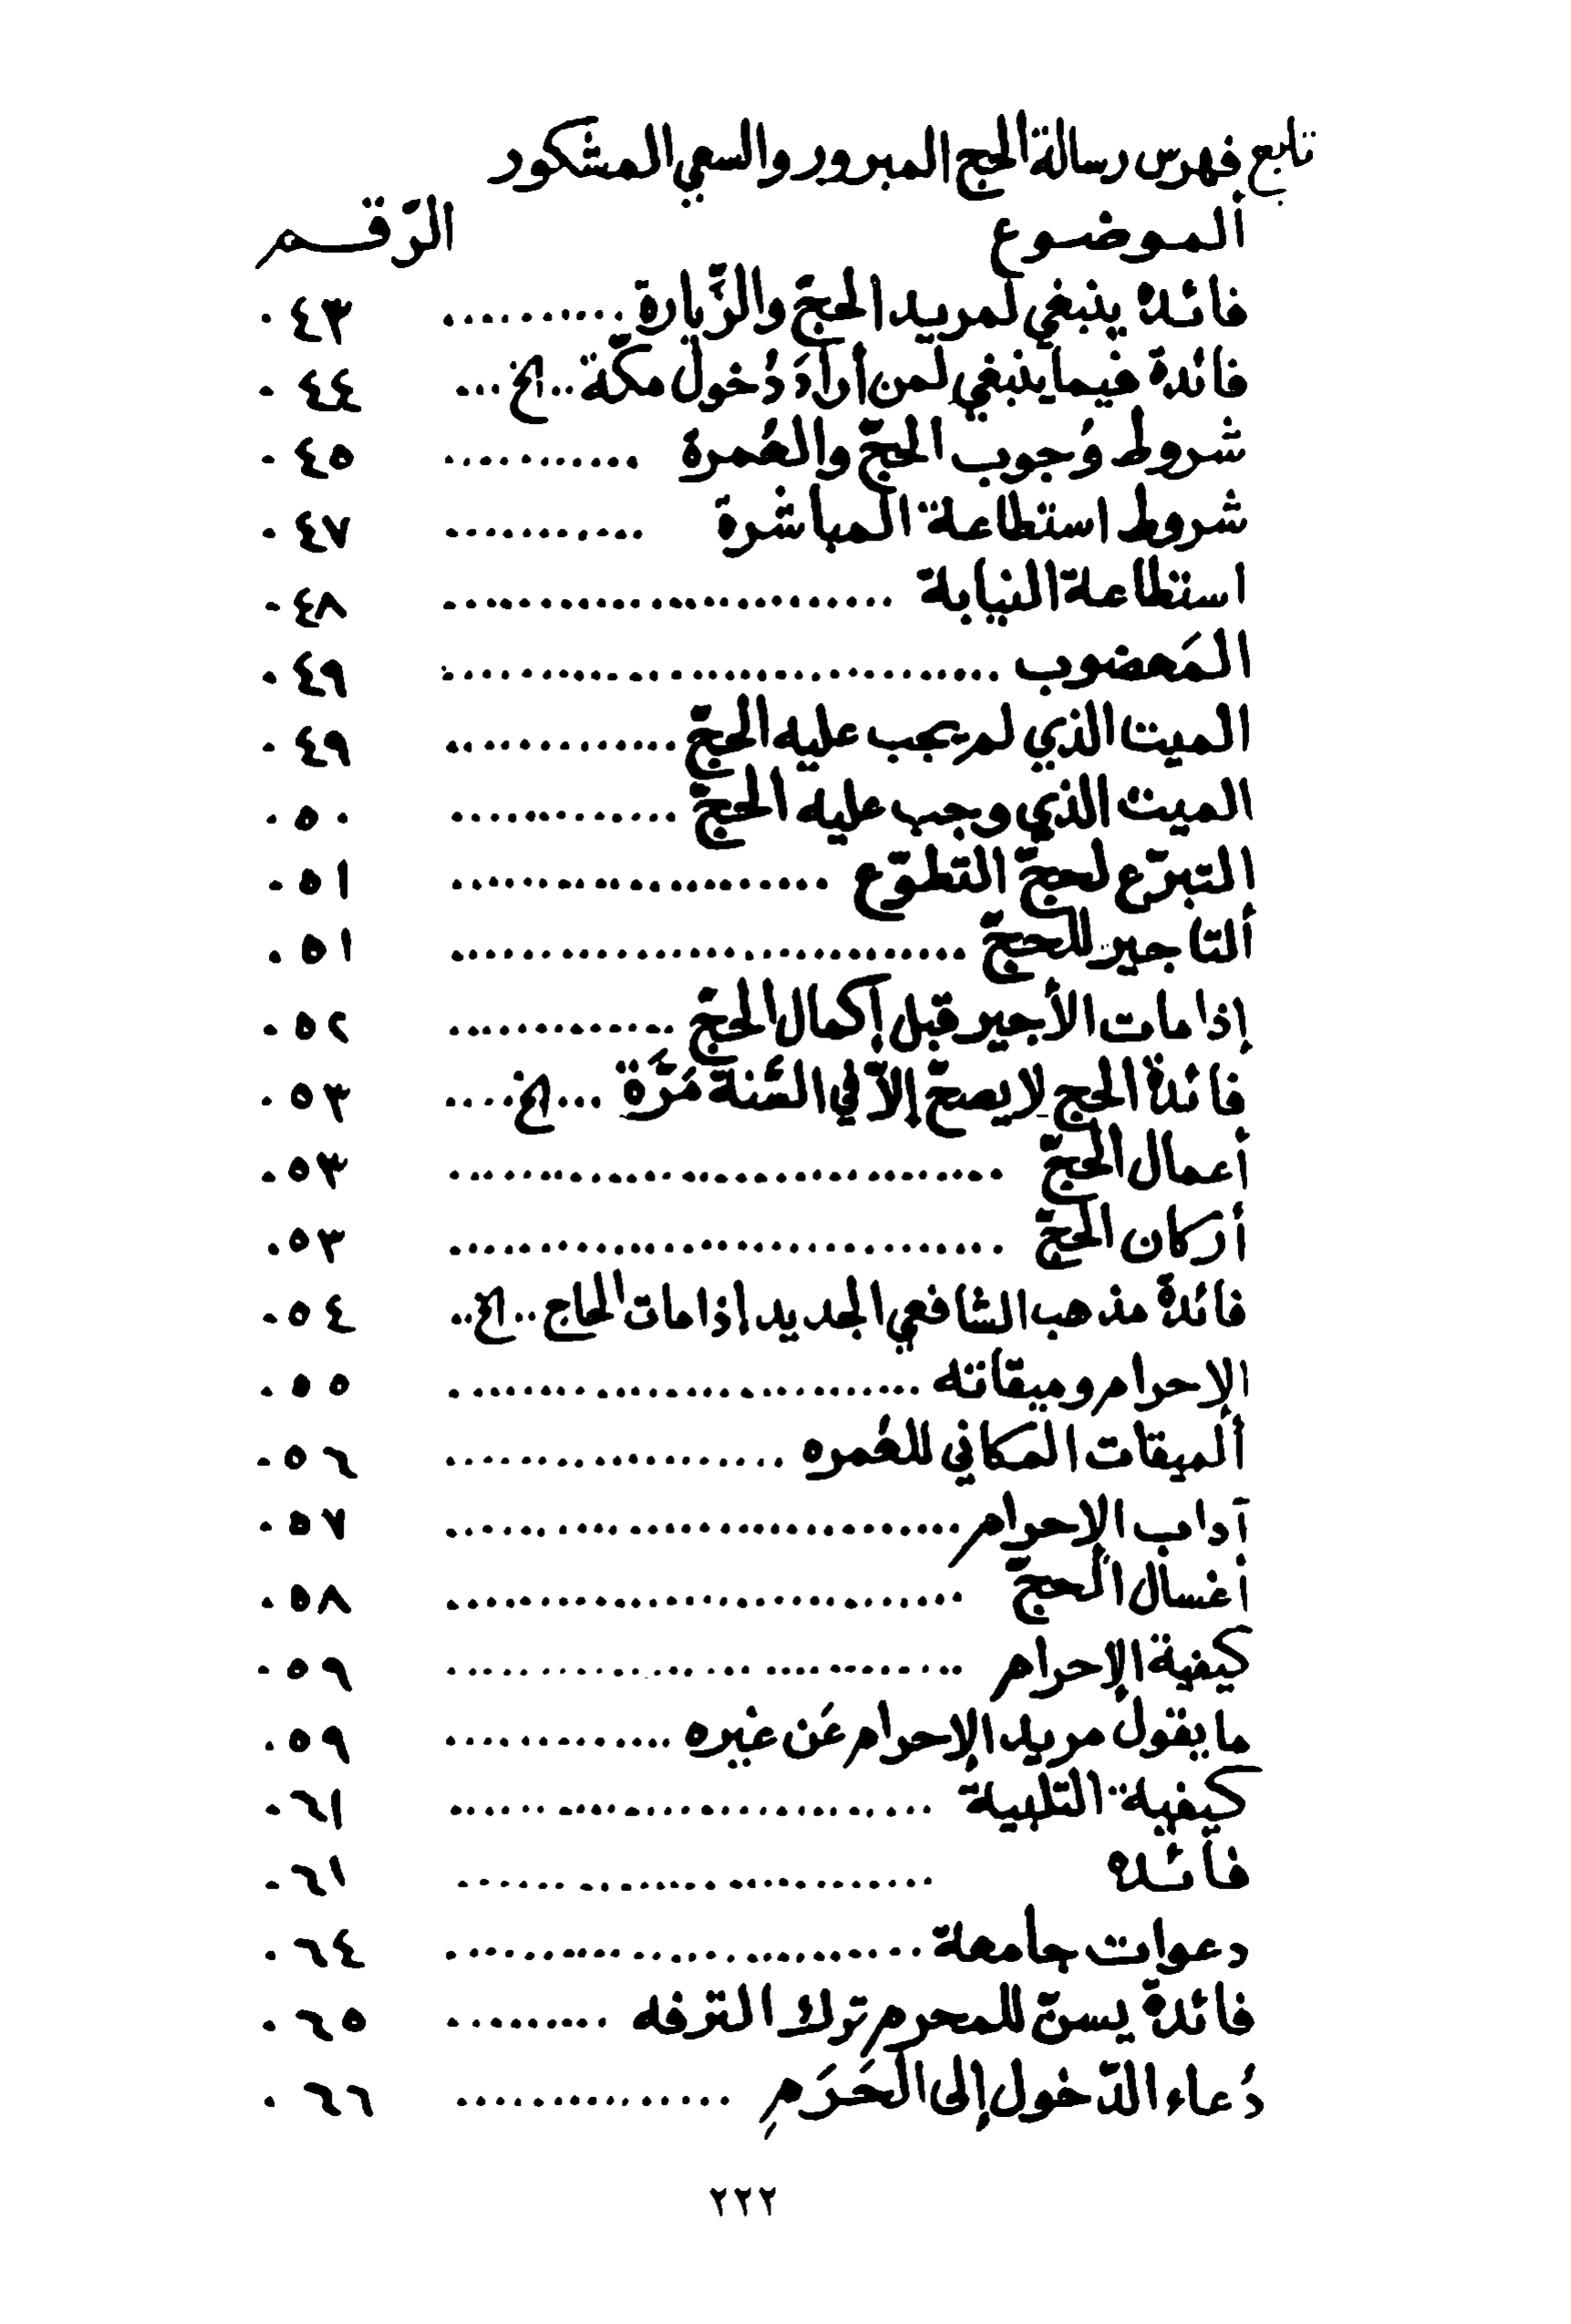 تابع فهرس رسالة الحج المبرور والسعي المشكور
ألموضوع الرّقم
فائدة ينبغي لمريد الحجّ والزّيارة .......... ٠٤٣
فائدة فيما ينبغي لمن أرادَ دُخول مكّة .. الخ ... ٠٤٤
شروط وُجوب الحجّ والعُمرة ........... ٠٤٥
شروط استطاعة المباشرة ........... ٠٤٧
استطاعة النيابة ......................... ٠٤٨
المَعضوب ............................... ٠٤٩
الميت الذي لم يجب عليه الحجّ ............. ٠٤٩
الميت الذي وجب عليه الحجّ ............. ٠٥٠
التبرّع لحجّ التطوّع ..................... ٠٥١
ألتاجير للحجّ ............................. ٠٥١
إذا مات الأجير قبل إكمال الحجّ ............. ٠٥٢
فائدة الحج لا يصحّ إلاّ في السَّنة مَرَّة ... الخ .... ٠٥٣
أعمال الحجّ ............................... ٠٥٣
أركان الحجّ ............................... ٠٥٣
فائدةً مذهب الشافعي الجديد إذا مات الحاج .. الخ .. ٠٥٤
الإحرام وميقاته .......................... ٠٥٥
ألميقات المكاني للعُمره ................... ٠٥٦
آداب الإحرام ............................. ٠٥٧
أغسال الحجّ ............................. ٠٥٨
كيفية الإحرام ............................ ٠٥٩
ما يقول مريد الإحرام عَن غيره ............. ٠٥٩
كيفية التلبية ........................... ٠٦١
فائدة ......................... ٠٦١
دعوات جامعة .......................... ٠٦٤
فائدة يسنّ للمحرم ترك الترفه ......... ٠٦٥
دُعاء الدّخول إلى الحَرَمِ ............... ٠٦٦
٢٢٢